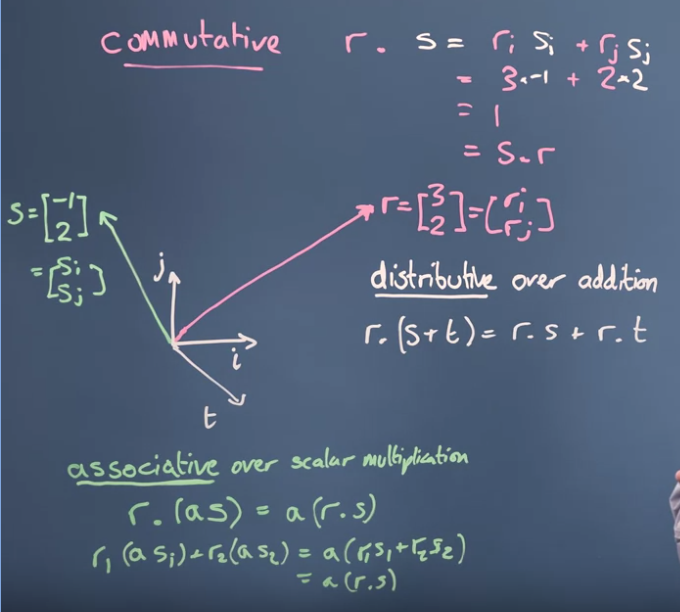 commutative r. s = rᵢ sᵢ + rⱼ sⱼ
= 3×-1 + 2×2
= 1
= s.r
s = [-1 2]
= [sᵢ sⱼ]
r = [3 2] = [rᵢ rⱼ]
j
i
t
distributive over addition
r.(s+t) = r.s + r.t
associative over scalar multiplication
r.(as) = a(r.s)
r₁(as₁)+r₂(as₂) = a(r₁s₁+r₂s₂)
= a(r.s)